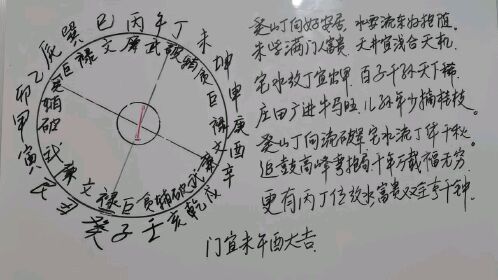 巽巳丙午丁未坤申庚酉辛戌乾亥壬子癸丑艮寅甲卯乙辰
巨禄文廉武破辅贪巨禄文廉武破辅贪巨禄文廉武破辅贪
癸山丁向好安居 水要流东好相随
朱紫满门人富贵 天井宜浅合天机
宅水放丁宜出甲 百子千孙天下稀
庄田广进牛马旺 儿孙年少摘桂枝
癸山丁向流破军 宅水流丁传千秋
高峰喜相向 千年万载福无穷
更有丙丁位放水富贵双全享千钟
门宜未午酉大吉.